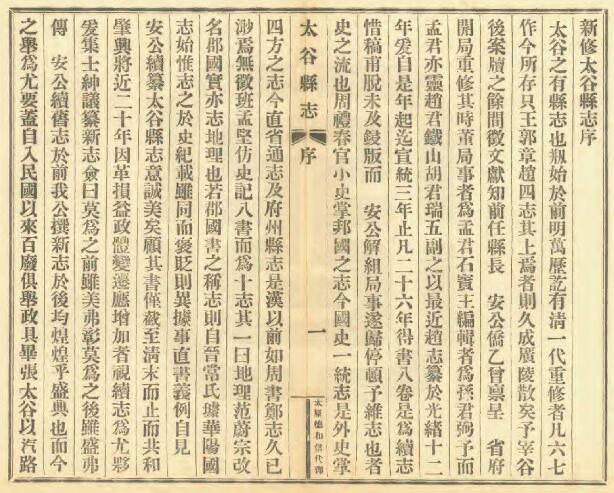 新修太谷縣志序
太谷之有縣志也剏始於前明萬歷訖有清一代重修者凡六七
作今所存只王郭章趙四志其上焉者則久成廣陵散矣予宰谷
後案牘之餘間徵文獻知前任縣長　安公僑乙曾禀呈　省府
開局重修其時董局事者爲孟君石寳王編輯者爲孫君弼予而
孟君亦靈趙君鐵山胡君瑞五副之以最近趙志纂於光緒十二
年爰自是年起迄宣統三年止凡二十六年得書八卷是爲續志
惜稿甫脫未及鋟版而　安公解組局事遂歸停頓予維志也者
史之流也周禮春官小史掌邦國之志今國史一統志是外史掌
太谷縣志　序
一
太原德和信代印
四方之志今直省通志及府州縣志是漢以前如周書鄭志久已
渺焉無徵班孟堅仿史記八書而爲十志其一曰地理范蔚宗改
名郡國實亦志地理也若郡國書之稱志則自晉常氏璩華陽國
志始惟志之於史紀載雖同而褒貶則異據事直書義例自見
安公續纂太谷縣志意誠美矣顧其書僅截至清末而止而共和
肇興將近二十年因革損益政體變遷應增加者視續志爲尤夥
爰集士紳議纂新志僉曰莫爲之前雖美弗彰莫爲之後雖盛弗
傳　安公續舊志於前我公撰新志於後均煌煌乎盛典也而今
之舉爲尤要蓋自入民國以來百廢俱舉政具畢張太谷以汽路